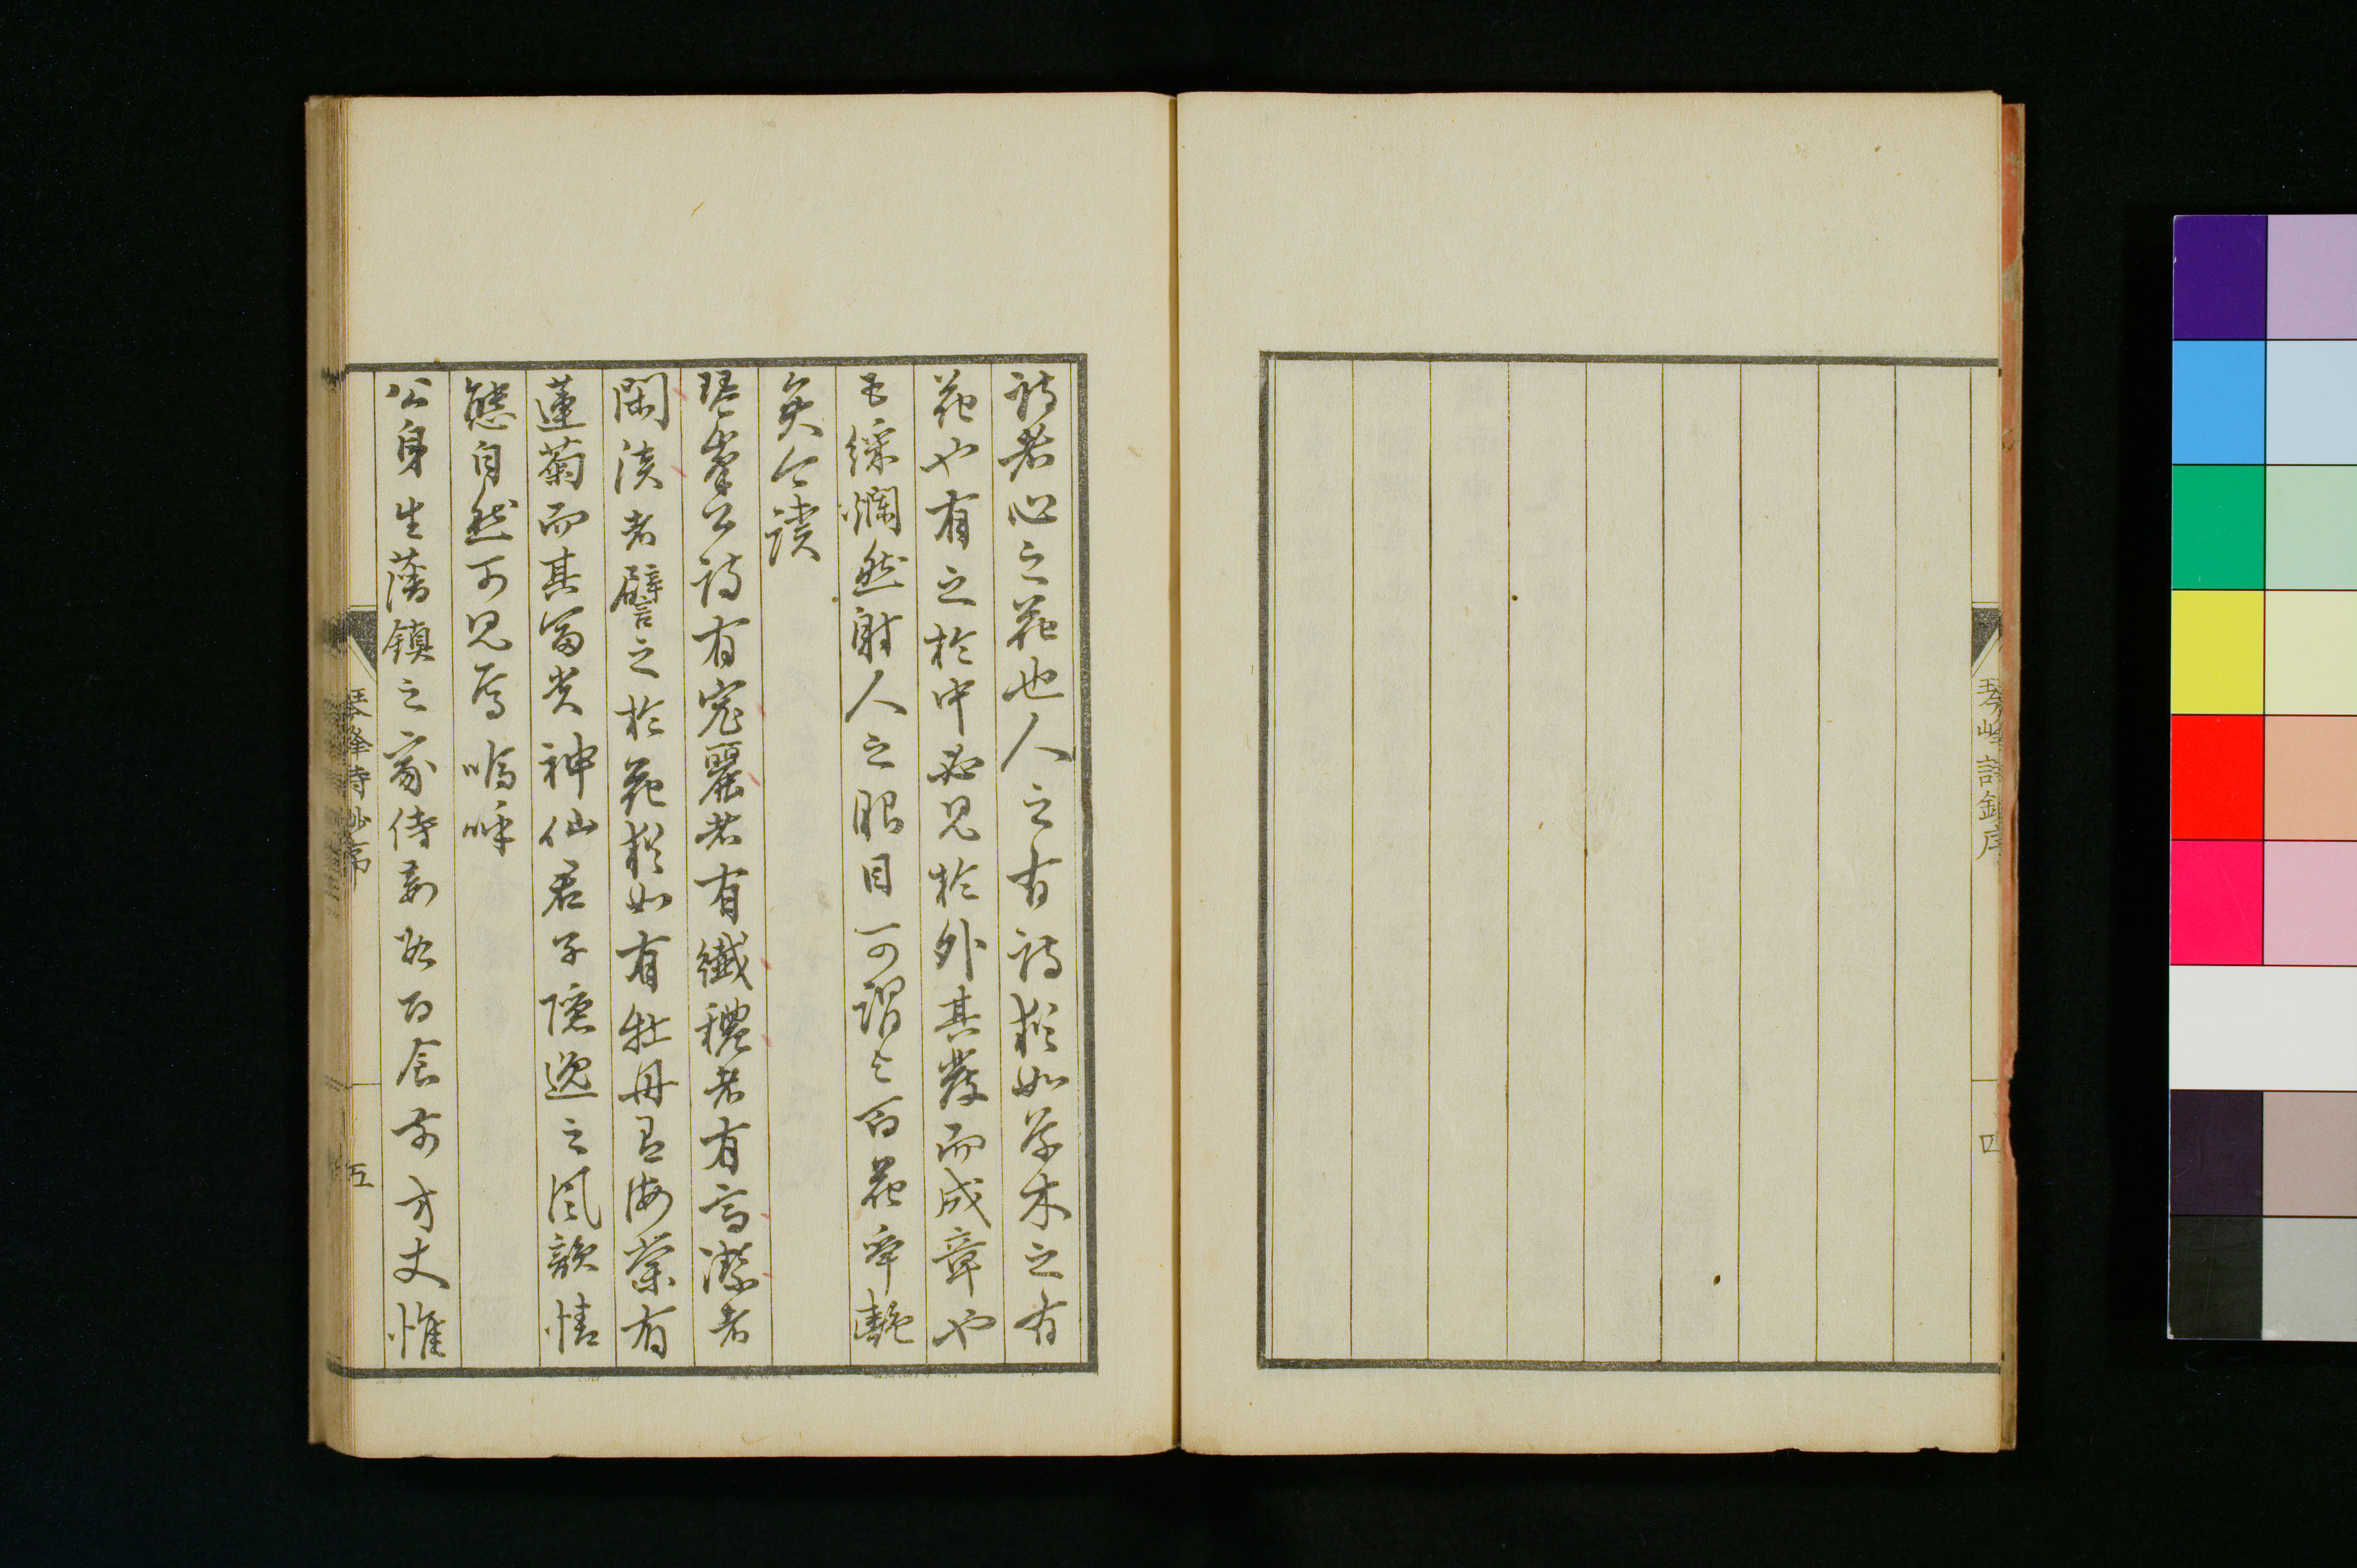 琴峰詩鈔序
四
詩者心之花也人之有詩猶如草木之有
花也有之於中必見於外其發而成章也
五綵爛然射人之眼目可謂之百花爭艷
矣今讀
琴峯公詩有宏麗者有纖穠者有高潔者
閑淡者譬之於花猶如有牡丹有海棠有
蓮菊而其富貴神仙君子隱逸之風韻情
態自然可見焉嗚呼
公身生藩鎮之家侍妾數百食前方丈惟
琴峰詩鈔序
五